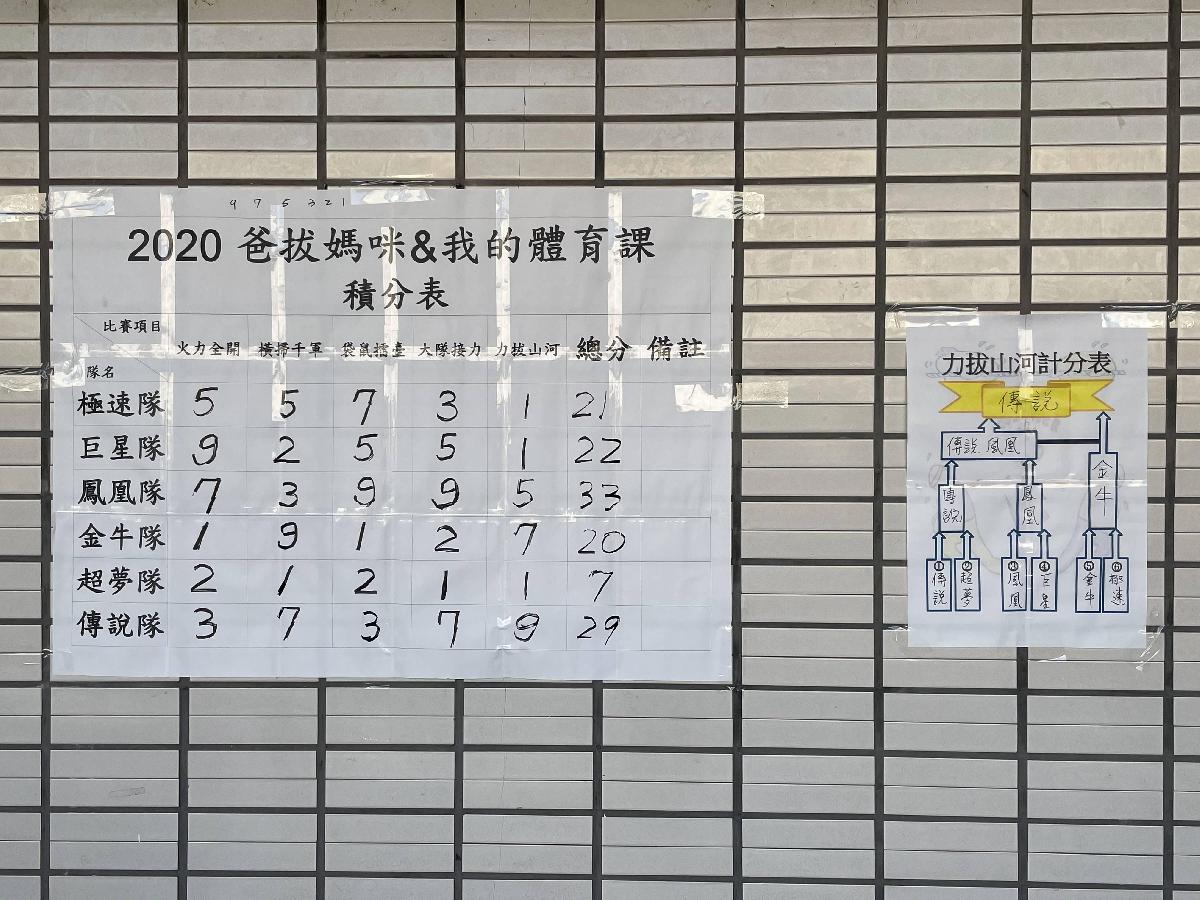 9 7 5 3 2 1
2020 爸拔媽咪&我的體育課
積分表
比賽項目 火力全開 橫掃千軍 袋鼠擂臺 大隊接力 力拔山河 總分 備註
隊名
極速隊 5 5 7 3 1 21
巨星隊 9 2 5 5 1 22
鳳凰隊 7 3 9 9 5 33
金牛隊 1 9 1 2 7 20
超夢隊 2 1 2 1 1 7
傳說隊 3 7 3 7 9 29
力拔山河計分表
傳說
傳說 鳳凰
金牛
傳說 鳳凰
①傳說 ②超夢 ③鳳凰 ④巨星 ⑤金牛 ⑥極速